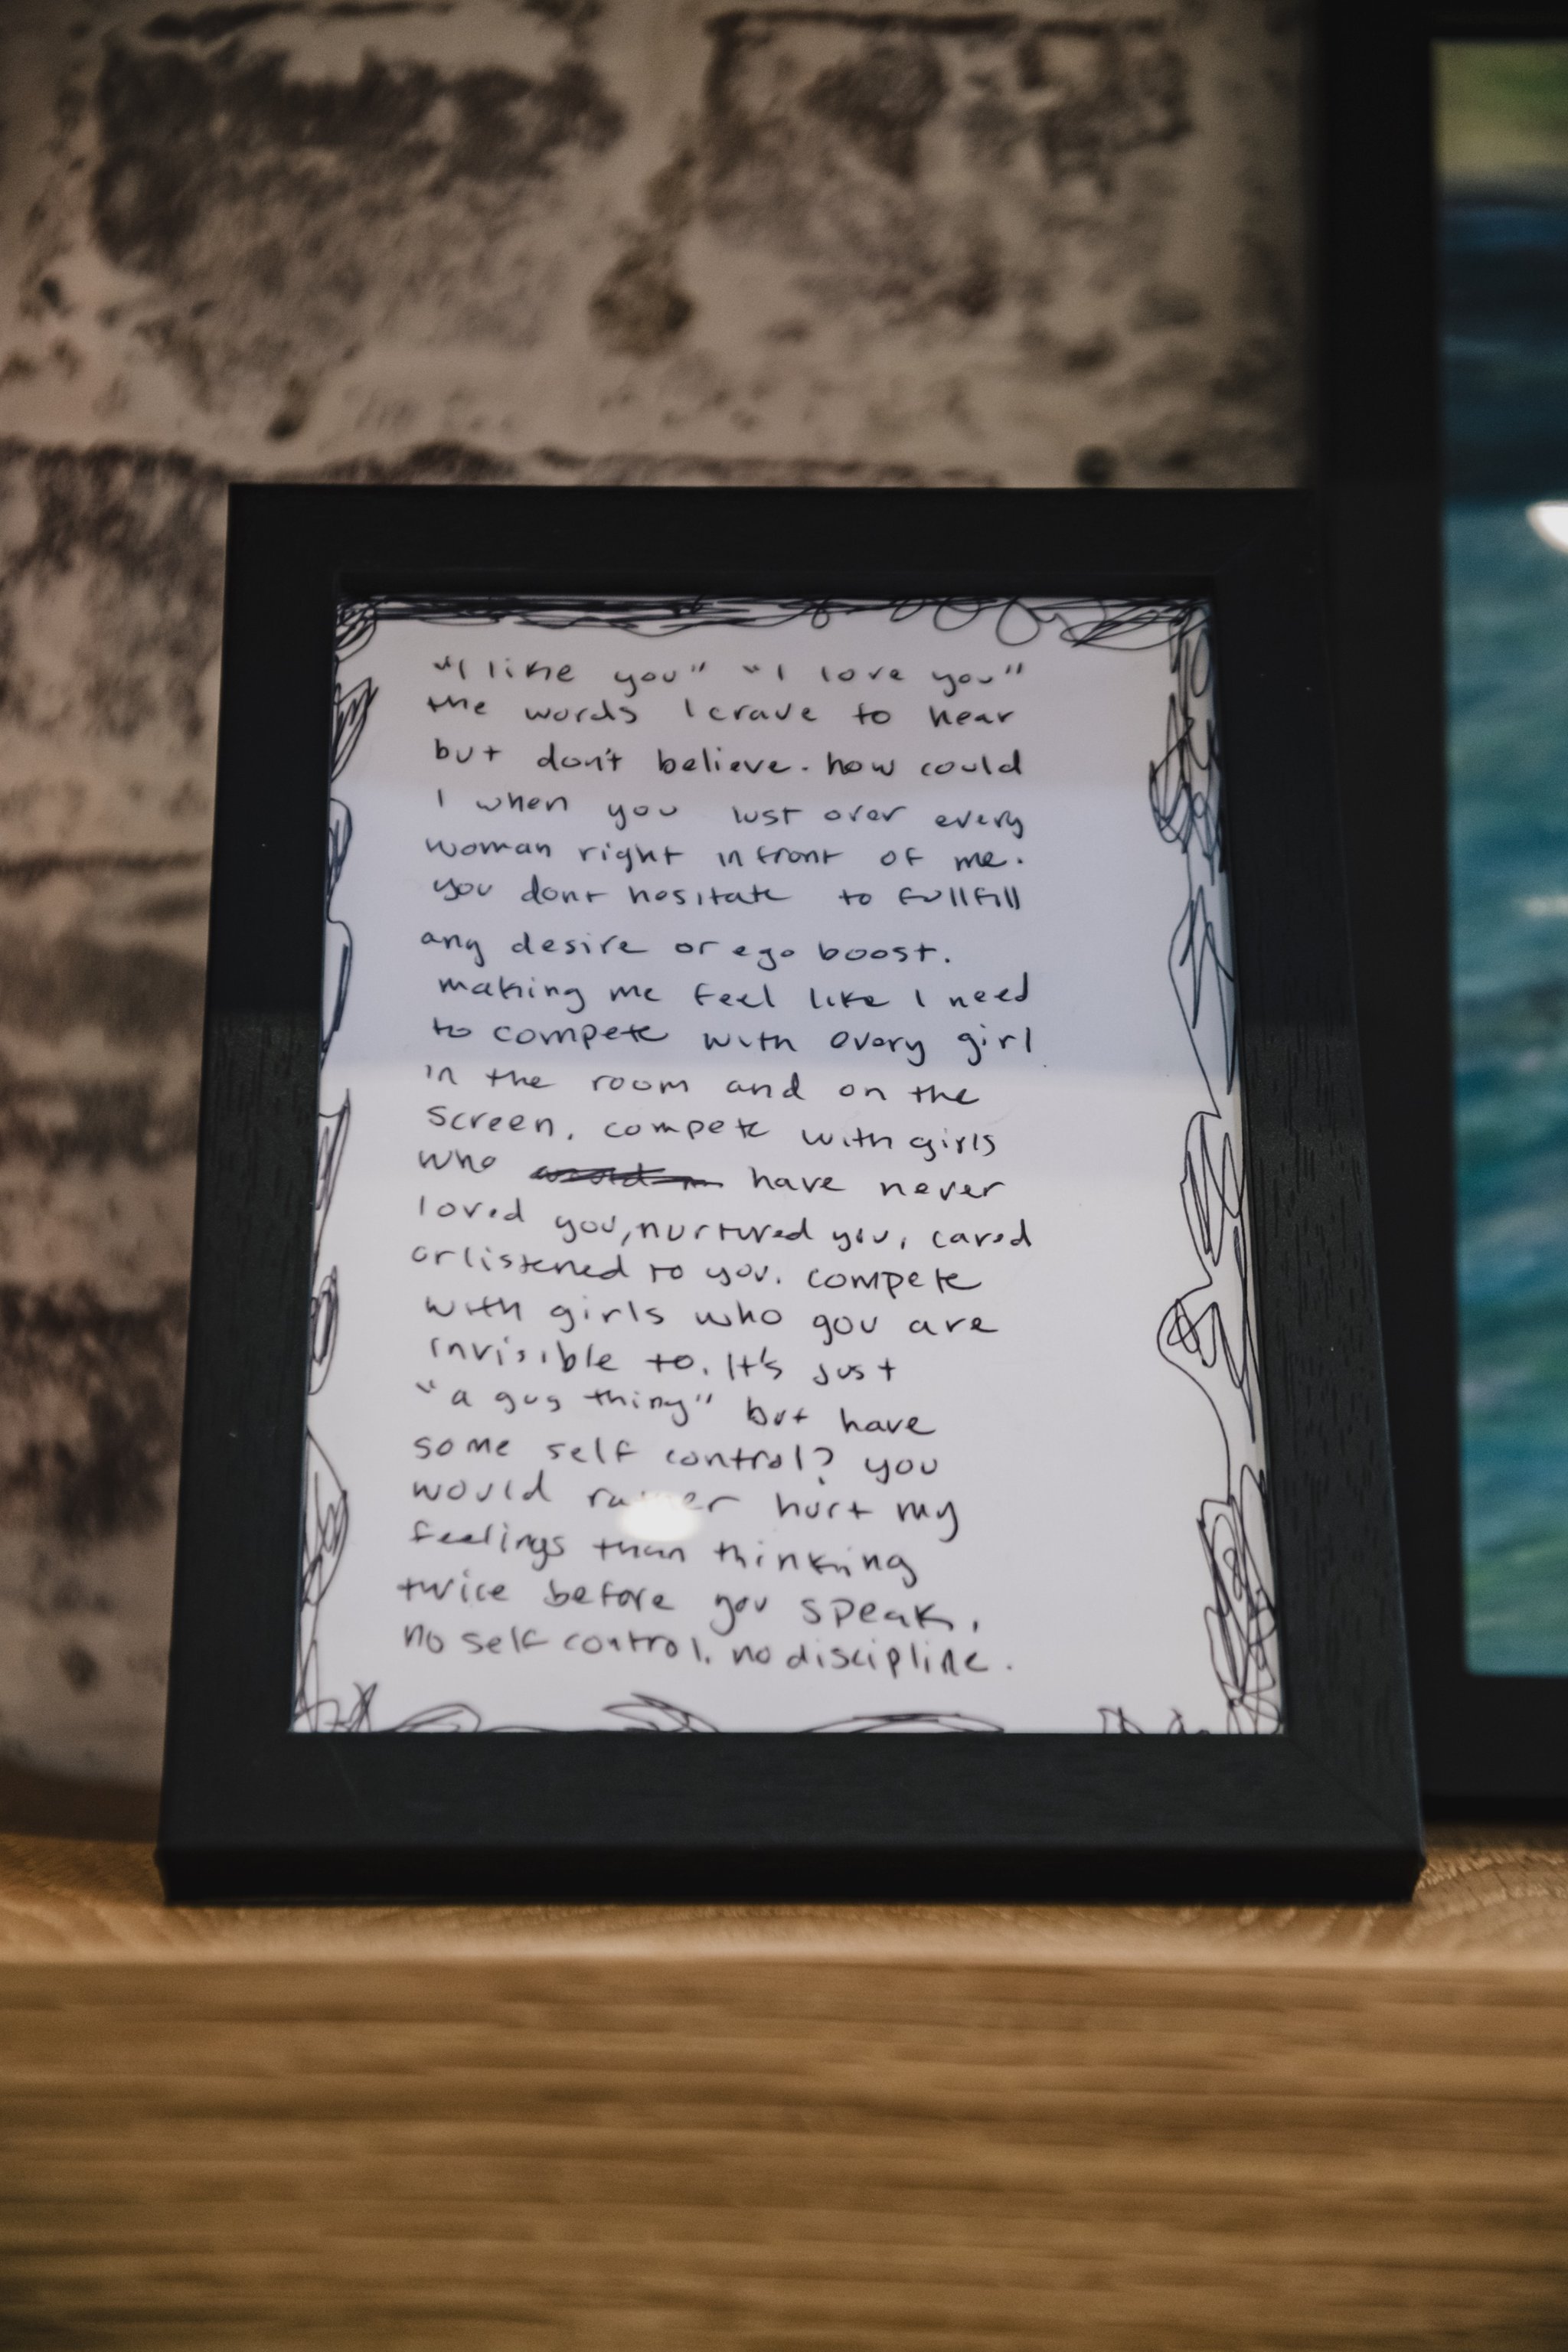 "I like you" "I love you"
the words I crave to hear
but don't believe. how could
I when you lust over every
woman right infront of me.
you dont hesitate to fullfill
any desire or ego boost.
making me feel like I need
to compete with every girl
in the room and on the
screen. compete with girls
who have never
loved you, nurtured you, cared
or listened to you. compete
with girls who you are
invisible to. It's just
"a guy thing" but have
some self control? you
would rather hurt my
feelings than thinking
twice before you speak.
no self control. no discipline.